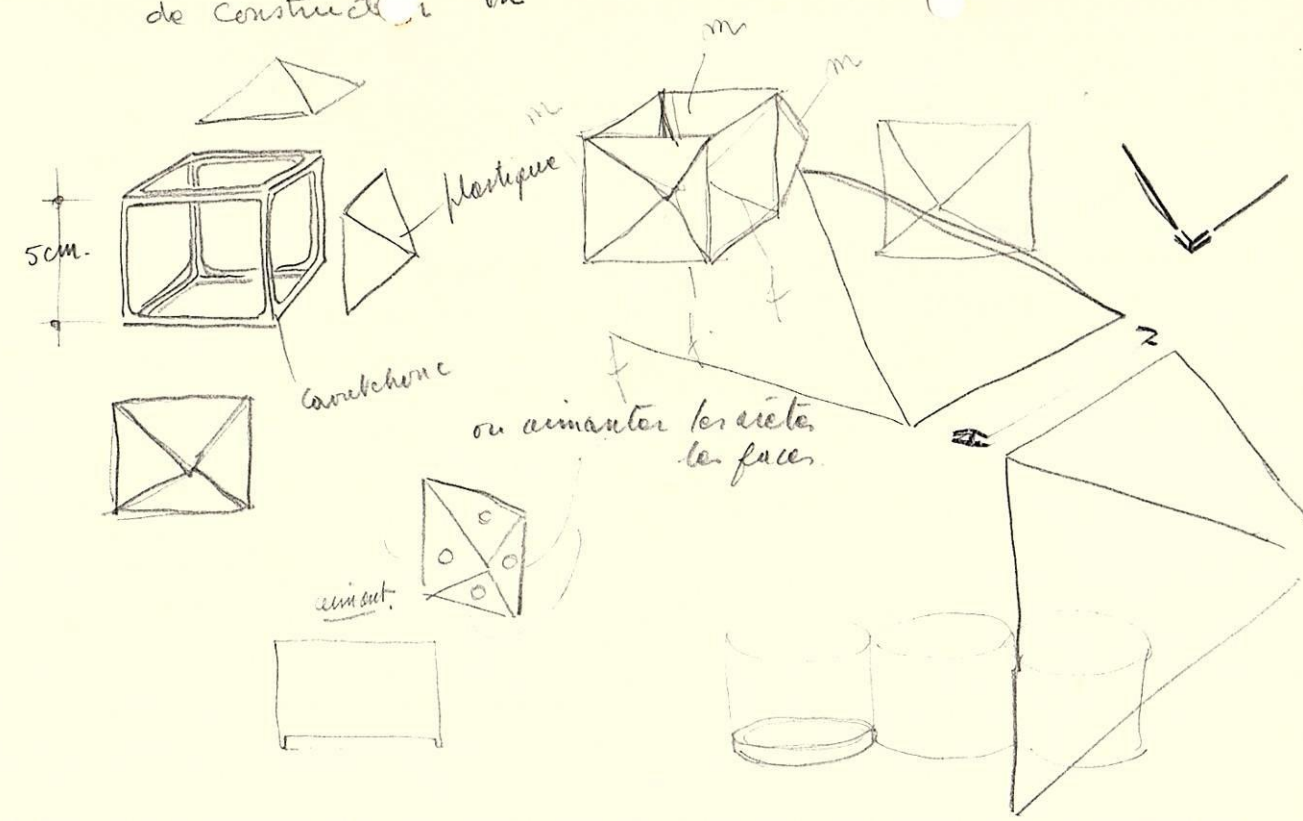 de construct
m
m
m
plastique
5cm.
caoutchouc
f
f
f
2
ou aimanter les arêtes
les faces
aimant.